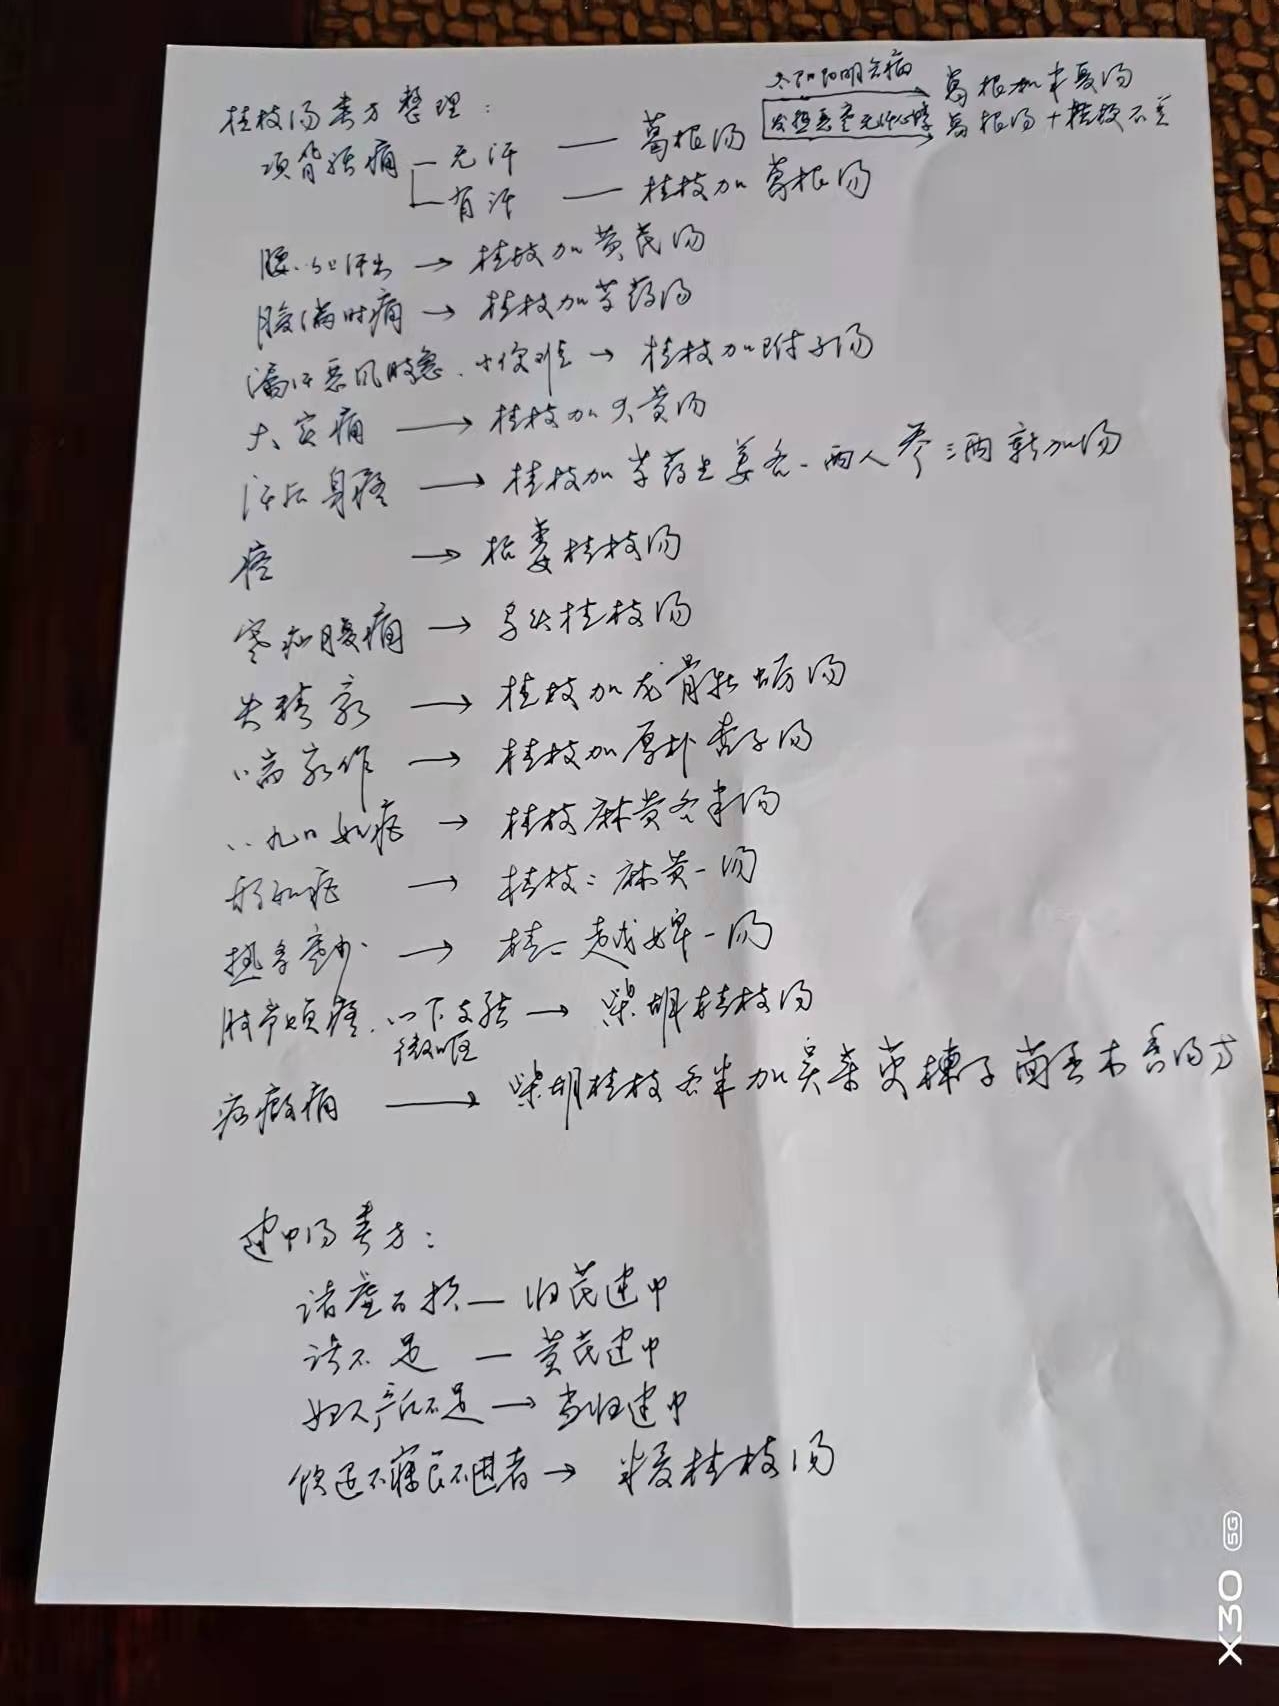 桂枝汤类方整理：
太阳阳明合病
葛根加半夏汤
项背强痛 无汗 — 葛根汤
发热恶寒无汗心悸
葛根汤+桂枝不
有汗 — 桂枝加葛根汤
腰以上汗出 → 桂枝加黄芪汤
腹满时痛 → 桂枝加芍药汤
漏汗恶风肢急.小便难 → 桂枝加附子汤
大实痛 → 桂枝加大黄汤
汗后身疼 → 桂枝加芍药生姜各一两人参三两新加汤
痉 → 栝蒌桂枝汤
寒疝腹痛 → 乌头桂枝汤
失精家 → 桂枝加龙骨牡蛎汤
喘家作 → 桂枝加厚朴杏子汤
八九日如疟 → 桂枝麻黄各半汤
形如疟 → 桂枝二麻黄一汤
热多寒少 → 桂二越婢一汤
肢节烦疼.心下支结 → 柴胡桂枝汤
微呕
疝瘕痛 → 柴胡桂枝各半加吴茱萸楝子茴香木香汤方
建中汤类方：
诸虚百损 — 归芪建中
诸不足 — 黄芪建中
妇人产后不足 → 当归建中
饮逆不寐 不 者 → 半夏桂枝汤
X30 5G